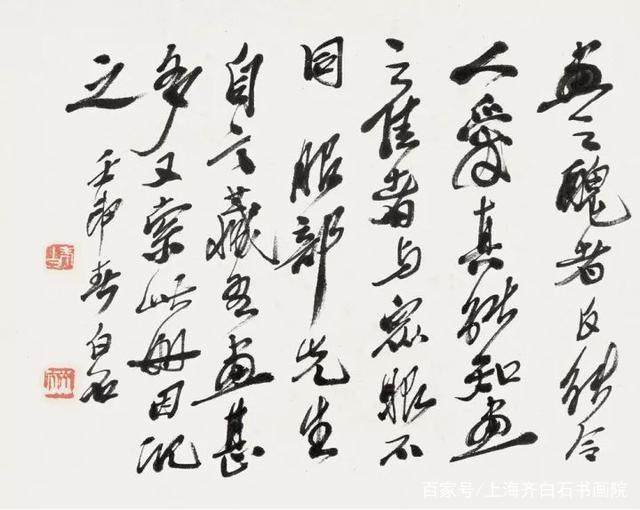 画之醜者良能令
人愛真能知画
之佳者与眾眼不
同 服部先生
自言藏吾画甚
多又索此册因訊
之
壬申春白石
百家号/上海齐白石书画院